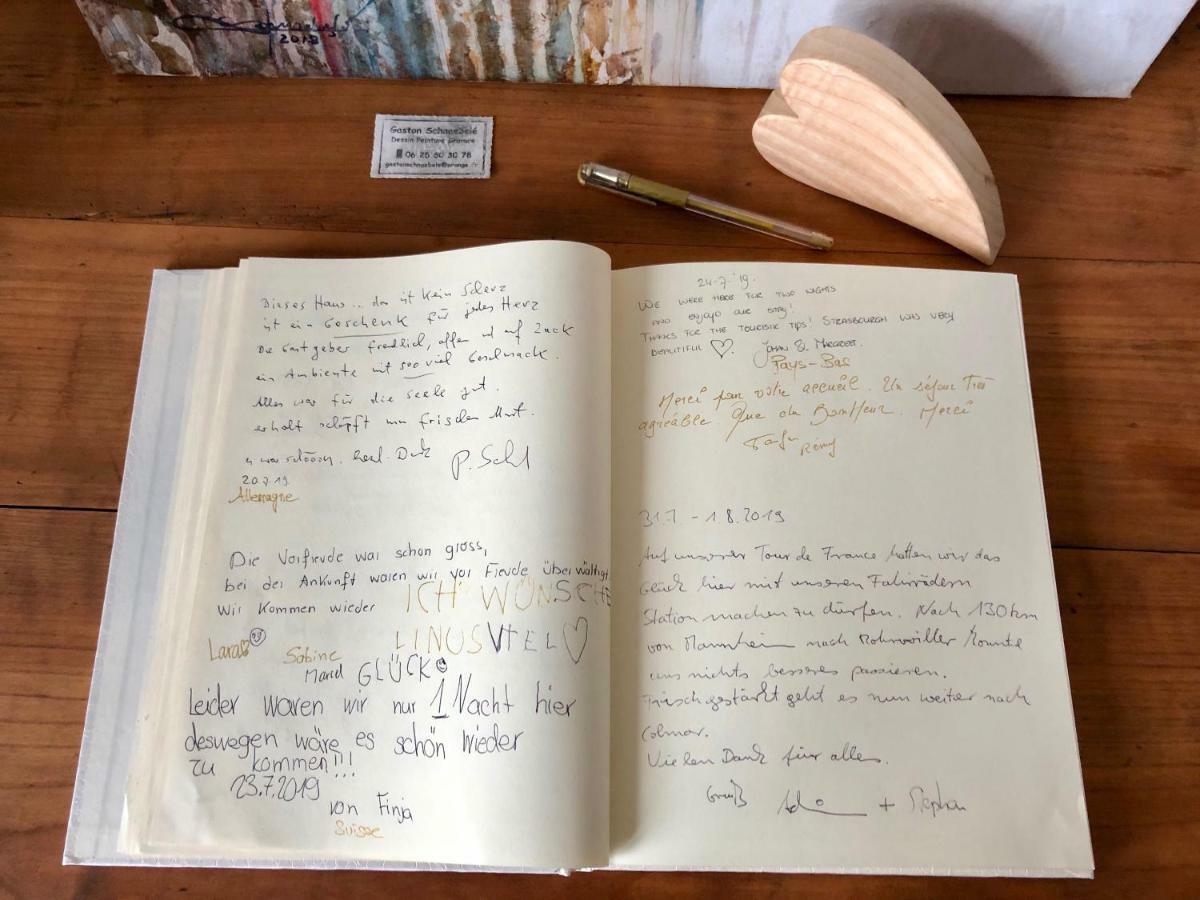 2018
Gaston Schnoebelé
Dessin Peinture Gravure
06 25 60 30 78
Dieses Haus... das ist kein Scherz
ist ein Geschenk für jedes Herz
Die Gastgeber freundlich, offen und auf Zack
ein Ambiente mit sooo viel Geschmack.
Alles war für die Seele gut.
erholt schöpft man frischen Mut.
es war schöön. herzl. Dank
20.7.19
Allemagne
Die Vorfreude war schon gross,
bei der Ankunft waren wir vor Freude überwältigt.
Wir kommen wieder
ICH WÜNSCHE
LINUS VIEL ♡
Lara
Sabine
Marcel
GLÜCK
Leider waren wir nur 1 Nacht hier
deswegen wäre es schön wieder
zu kommen!!!
23.7.2019
von Finja
Suisse
24-7-'19.
WE WERE HERE FOR TWO NIGHTS
AND ENJOYD OUR STAY!
THANKS FOR THE TOURISTIK TIPS! STRASBOURGH WAS VERY
BEAUTIFULL ♡. JOHAN & MARGREET.
Pays-Bas
Merci pour votre accueil. Un séjour Très
agréable. Que du Bonheur. Merci
Rémy
31.7. - 1.8.2019
Auf unserer Tour de France hatten wir das
Glück hier mit unseren Fahrrädern
Station machen zu dürfen. Nach 130 km
von Mannheim nach Rohrwiller konnte
uns nichts besseres passieren.
Frisch gestärkt geht es nun weiter nach
Colmar.
Vielen Dank für alles.
Gruß
+ Stephan